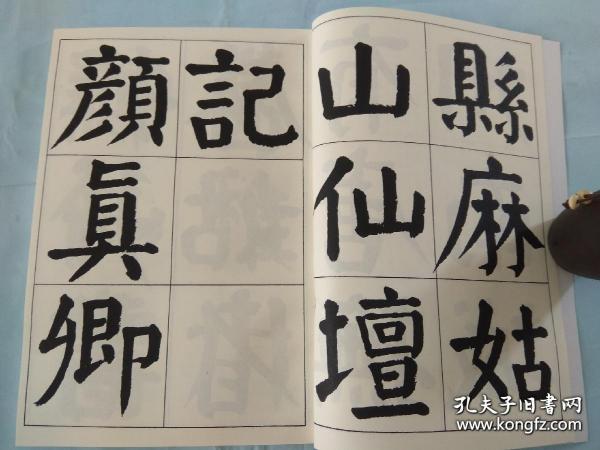 縣麻姑
山仙壇
記
顏眞卿
孔夫子旧書网
www.kongfz.com